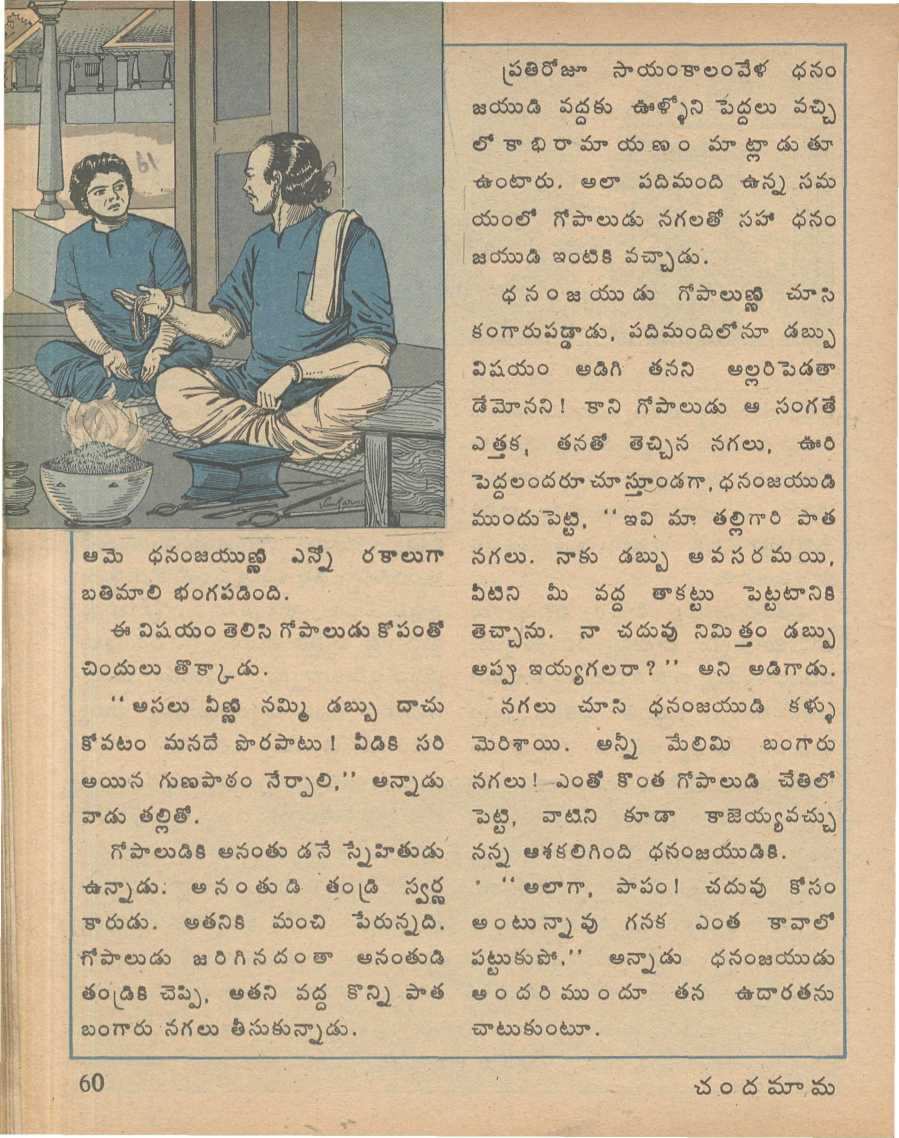 ఆమె ధనంజయుణ్ణి ఎన్నో రకాలుగా
బతిమాలి భంగపడింది.
ఈ విషయం తెలిసి గోపాలుడు కోపంతో
చిందులు తొక్కాడు.
‘‘అసలు వీణ్ణి నమ్మి డబ్బు దాచు
కోవటం మనదే పొరపాటు! వీడికి సరి
అయిన గుణపాఠం నేర్పాలి,’’ అన్నాడు
వాడు తల్లితో.
గోపాలుడికి అనంతు డనే స్నేహితుడు
ఉన్నాడు. అనంతుడి తండ్రి స్వర్ణ
కారుడు. అతనికి మంచి పేరున్నది.
గోపాలుడు జరిగినదంతా అనంతుడి
తండ్రికి చెప్పి, అతని వద్ద కొన్ని పాత
బంగారు నగలు తీసుకున్నాడు.
ప్రతిరోజూ సాయంకాలంవేళ ధనం
జయుడి వద్దకు ఊళ్ళోని పెద్దలు వచ్చి
లోకాభిరామాయణం మాట్లాడుతూ
ఉంటారు. అలా పదిమంది ఉన్న సమ
యంలో గోపాలుడు నగలతో సహా ధనం
జయుడి ఇంటికి వచ్చాడు.
ధనంజయుడు గోపాలుణ్ణి చూసి
కంగారుపడ్డాడు, పదిమందిలోనూ డబ్బు
విషయం అడిగి తనని అల్లరిపెడతా
డేమోనని! కాని గోపాలుడు ఆ సంగతే
ఎత్తక, తనతో తెచ్చిన నగలు, ఊరి
పెద్దలందరూ చూస్తూండగా, ధనంజయుడి
ముందుపెట్టి, ‘‘ఇవి మా తల్లిగారి పాత
నగలు. నాకు డబ్బు అవసరమయి,
వీటిని మీ వద్ద తాకట్టు పెట్టటానికి
తెచ్చాను. నా చదువు నిమిత్తం డబ్బు
అప్పు ఇయ్యగలరా?’’ అని అడిగాడు.
నగలు చూసి ధనంజయుడి కళ్ళు
మెరిశాయి. అన్నీ మేలిమి బంగారు
నగలు! ఎంతో కొంత గోపాలుడి చేతిలో
పెట్టి, వాటిని కూడా కాజెయ్యవచ్చు
నన్న ఆశకలిగింది ధనంజయుడికి.
‘‘అలాగా, పాపం! చదువు కోసం
అంటున్నావు గనక ఎంత కావాలో
పట్టుకుపో,’’ అన్నాడు ధనంజయుడు
అందరిముందూ తన ఉదారతను
చాటుకుంటూ.
60
చందమామ